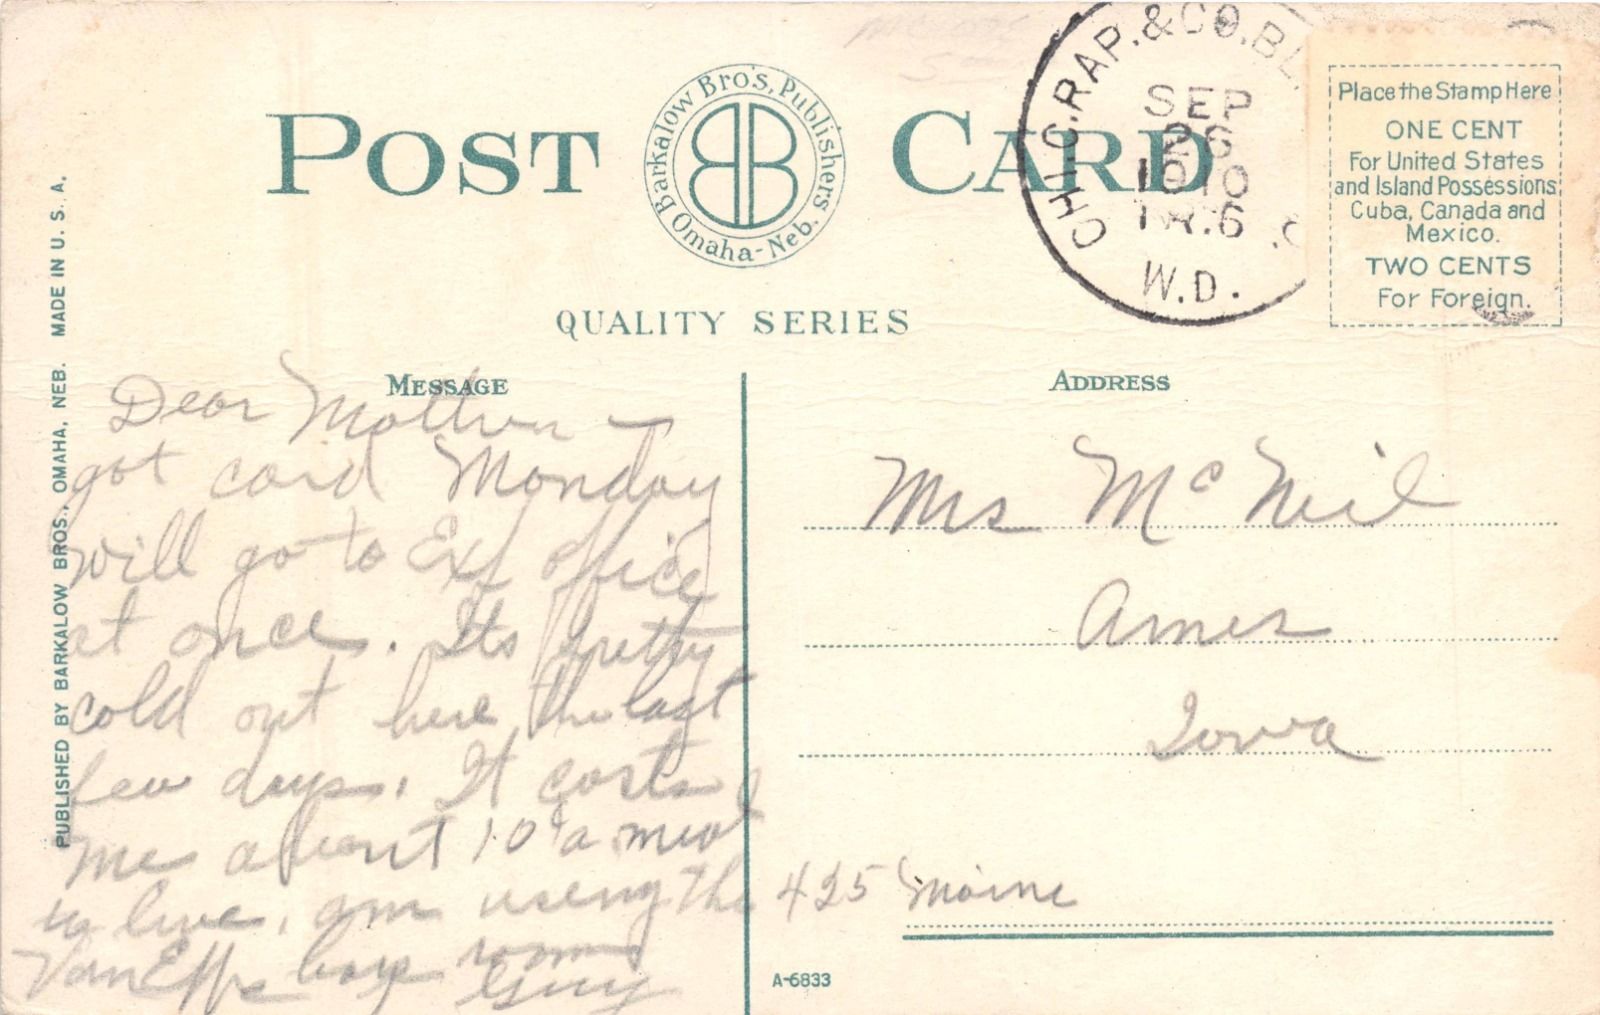 POST CARD
Barkalow Bro's, Publishers,
Omaha-Neb.
QUALITY SERIES
CHI. C. RAP. & CO. BL.
SEP
26
1910
TR. 6
W.D.
Place the Stamp Here
ONE CENT
For United States
and Island Possessions
Cuba, Canada and
Mexico.
TWO CENTS
For Foreign.
PUBLISHED BY BARKALOW BROS., OMAHA, NEB. MADE IN U. S. A.
MESSAGE
Dear Mother –
got card Monday
will go to Exp office
at once. Its pretty
cold out here the last
few days. It costs
me about 10¢ a meal
to live, am using the
VanEpps boys room
Guy
ADDRESS
Mrs McNeil
Ames
Iowa
425 Maine
A-6833